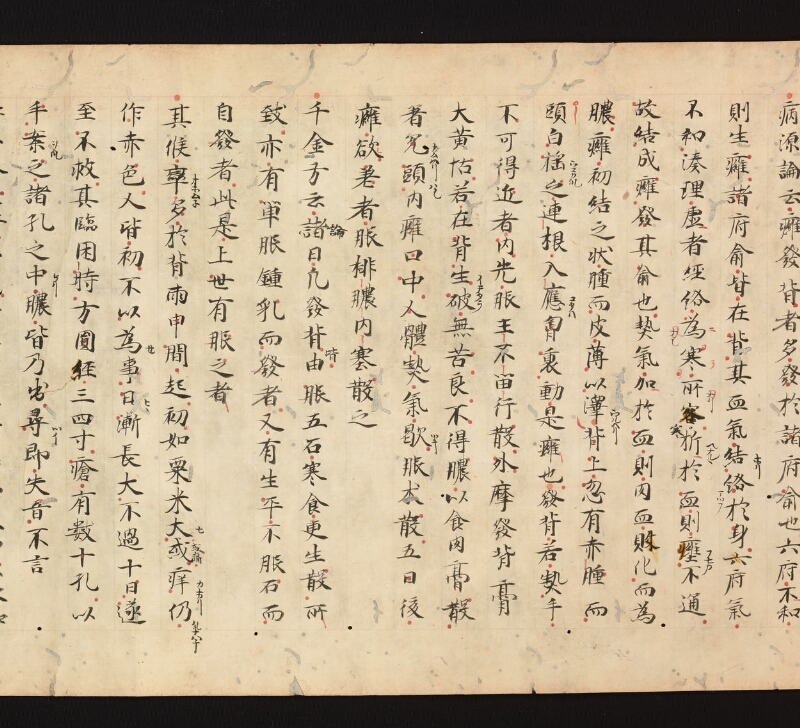 病源論云癰發背者多發於諸府俞也六府不和
則生癰諸府俞皆在背其血氣結絡於身六府氣
不和湊理虚者經絡為寒所客折於血則壅不通
故結成癰發其俞也熱氣加於血則肉血敗化而為
膿癰初結之狀腫而皮薄以澤背上忽有赤腫而
頭白搖之連根入應胷裏動是癰也發背若熱手
不可得近者内先服王不留行散外摩發背膏
大黄怗若在背生破無苦良不得膿以食肉膏散
著兌頭内癰口中人體熱氣歇服木散五日後
癰欲著者服排膿内塞散之
千金方云諸論曰凡發背由服五石寒食更生散所
致亦有單服鍾乳而發者又有生平不服石而
自發者此是上世有服之者
其候率多於背兩甲間起初如粟米大或痒仍
作赤色人皆初不以為事日漸長大不過十日遂
至不救其臨困時方圓徑三四寸瘡有數十孔以
手案之諸孔之中膿皆乃出尋即失音不言